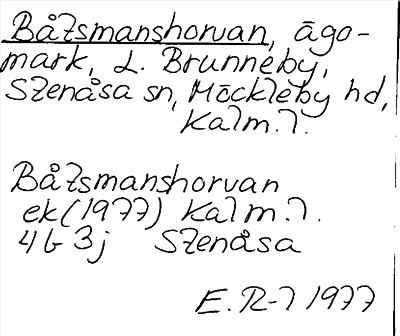 Båtsmanshorvan, ägo-
mark, L. Brunneby,
Stenåsa sn, Möckleby hd,
Kalm. l.
Båtsmanshorvan
ek (1977) Kalm. l.
4G 3j Stenåsa
E. R-l 1977